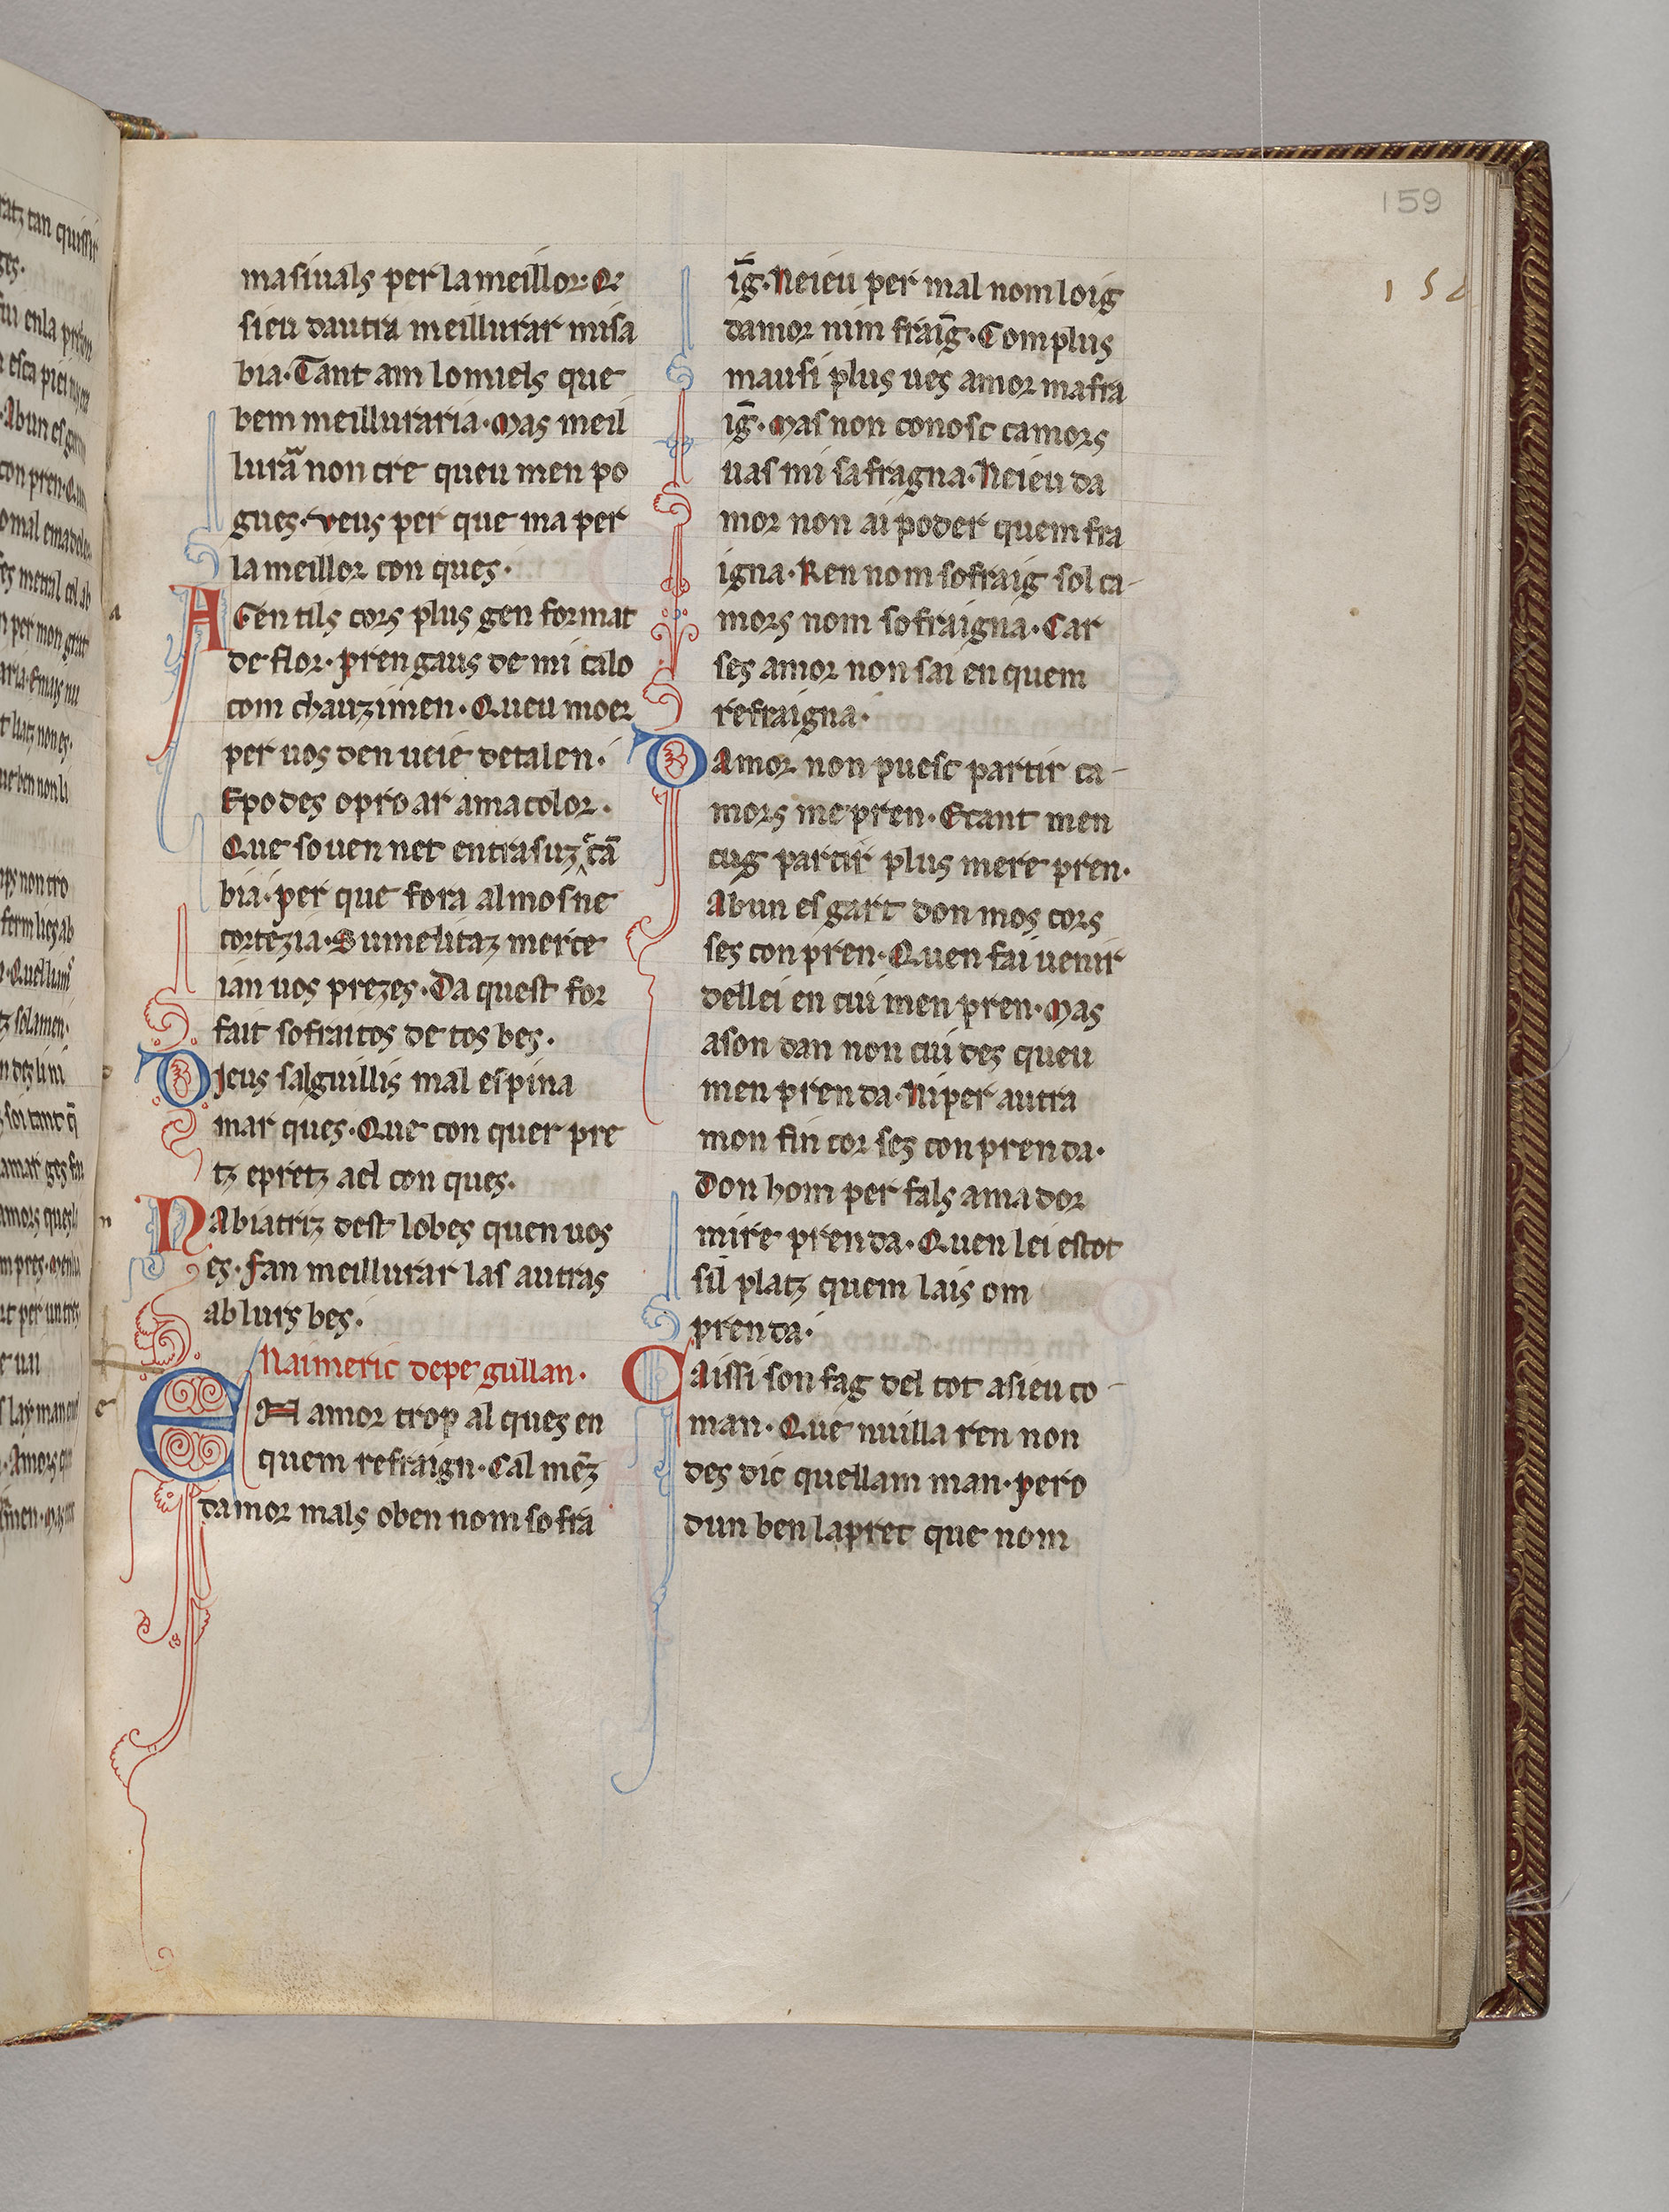 159
152
masiuals per lameillor. E
sieu dautra meillurar misa
bia. Tant am lomiels que
bem meilluraria. Mas meil
lurā non cre queu men po
gues. Veus per que ma per
lameillor con ques.
A Gentils cors plus gen format
de flor. prengaus de mi calo
com chauzimen. Queu moer
per uos den ueie detalen.
Epodes o proar amacolor.
Que souen net entrasuz cā
bia. per que fora almosne
cortezia. Sumelitaz merce
ian uos prezes. Da quest for
fait sofraitos de tos bes.
Dieus salguillis mal espina
mar ques. Que con quer pre
tz epretz ael con ques.
Nabiatriz dest lobes quen uos
es. fan meillurar las autras
ab lurs bes.
Naimeric depegullan.
EN amor trop alques en
quem refraign. Cal mēz
damor mals oben nom sofra
īg. Neieu per mal nom loig
damor nim fraīg. Com plus
mausi plus ues amor mafra
īg. Mas non conosc camors
uas mi safragna. Neieu da
mor non ai poder quem fra
igna. Ren nom sofraig sol ca
mors nom sofraigna. Car
ses amor non sai en quem
refraigna.
DAmor non puesc partir ca
mors me pren. Ecant men
cug partir plus mere pren.
Abun esgart don mos cors
ses con pren. Quen fai uenir
dellei en cui men pren. Mas
ason dan non cui des queu
men prenda. Niper autra
mon fin cor ses conprenda.
Don hom per fals amador
mire prenda. Quen lei estot
sil platz quem lais om
prenda.
Caissi son fag del tot asieu co
man. Que nuilla ren non
des dic quellam man. pero
dun ben lapret que nom